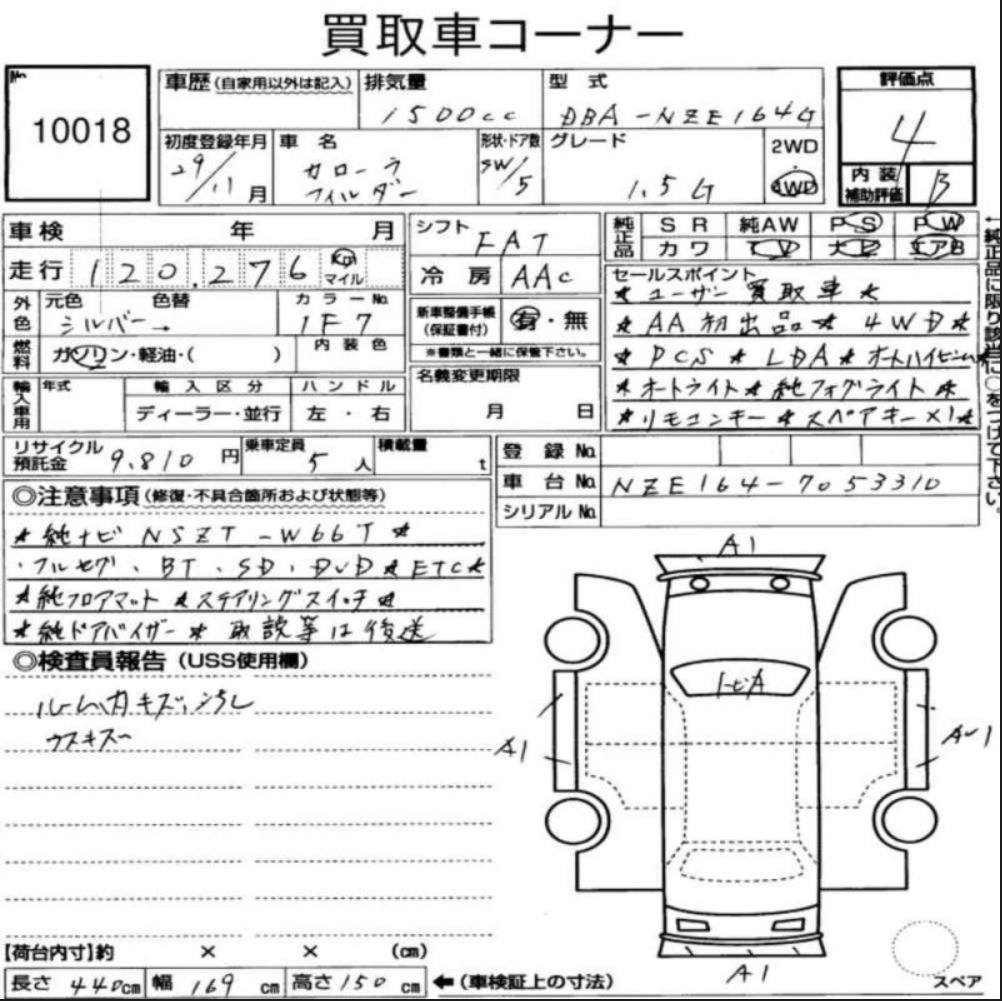 買取車コーナー
No 10018
車歴(自家用以外は記入) 排気量 1500cc 型式 DBA-NZE164G
評価点 4
初度登録年月 29/11月 車名 カローラ フィルダー 形状・ドア数 SW/5 グレード 1.5G 2WD 4WD
内装補助評価 B
車検 年 月
走行 120.276 km マイル
シフト FAT
冷房 AAC
純正品 SR 純AW PS PW
カワ TV ナビ エアB
外色 元色 シルバー→ 色替 カラーNo. 1F7
燃料 ガソリン・軽油・( ) 内装色
新車整備手帳(保証書付) 有・無
※書類と一緒に保管下さい。
セールスポイント
★ユーザー買取車★
★AA初出品★4WD★
★PCS★LDA★オートハイビーム★
★オートライト★純フォグライト★
★リモコンキー★スペアキー×1★
←純正品に限り該当に○をつけて下さい。
輸入車用 年式 輸入区分 ディーラー・並行 ハンドル 左・右
名義変更期限 月 日
リサイクル預託金 9,810円 乗車定員 5人 積載量 t
登録No.
車台No. NZE164-7053310
シリアルNo.
◎注意事項(修復・不具合箇所および状態等)
★純ナビ NSZT-W66T★
・フルセグ・BT・SD・DVD★ETC★
★純フロアマット★ステアリングスイッチ★
★純ドアバイザー★取説等は後送
◎検査員報告(USS使用欄)
ルーム内キズ、汚レ
ウスキズ
A1
トビA
A1
A1
A1
スペア
【荷台内寸】約 × × (cm)
長さ 440cm 幅 169cm 高さ 150cm ←(車検証上の寸法)